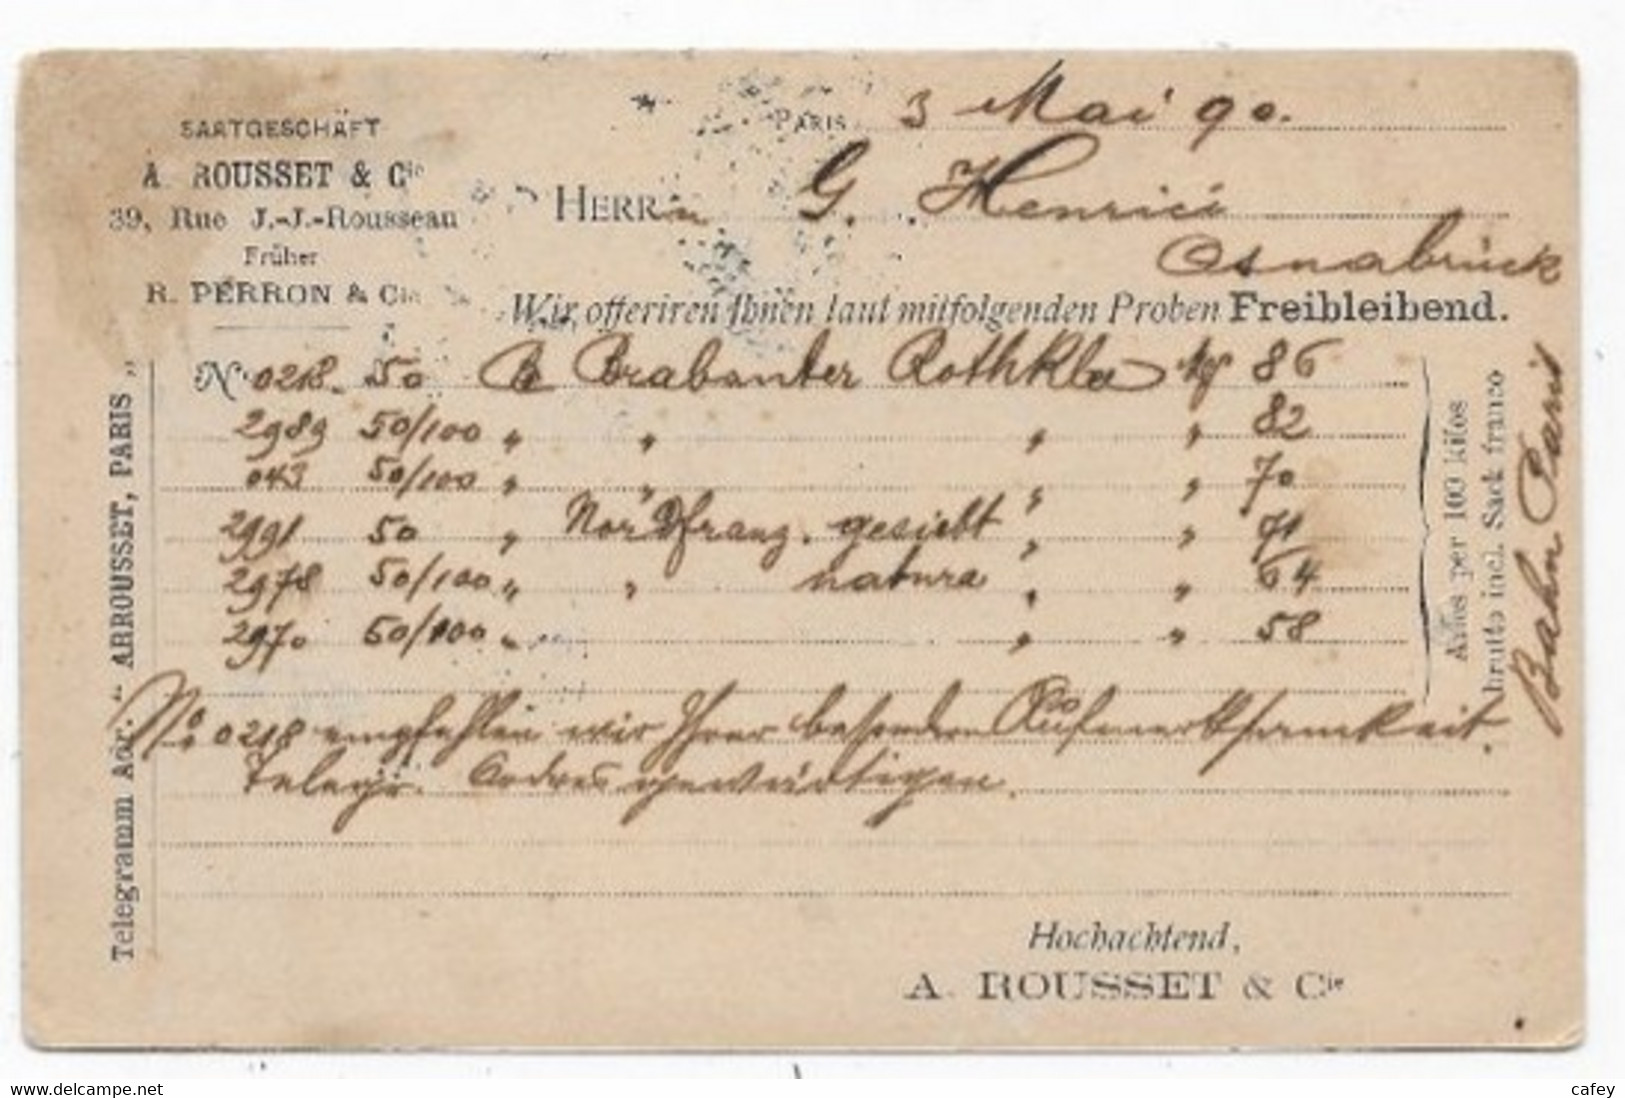 SAATGESCHÄFT
A. ROUSSET & Cie
39, Rue J.-J.-Rousseau
Früher
R. PERRON & Cie
PARIS 3 Mai 90.
HERRn G. Henrici
Osnabrück
Wir offeriren Ihnen laut mitfolgenden Proben Freibleibend.
No 0218 50 Brabanter Rothklee 86
2989 50/100 " " " " 82
043 50/100 " " " " 70
2991 50 " Nordfranz. gesiebt " " 71
2978 50/100 " " natura " " 64
2970 50/100 " " " 58
Alles per 100 kilos
brutto incl. Sack franco
Bahn Paris
No 0218 empfehlen wir Ihrer besonderen Aufmerksamkeit.
Telegr. Ordres gewärtigen.
Telegramm Adr. "ABROUSSET, PARIS"
Hochachtend,
A. ROUSSET & Cie
www.delcampe.net
cafey